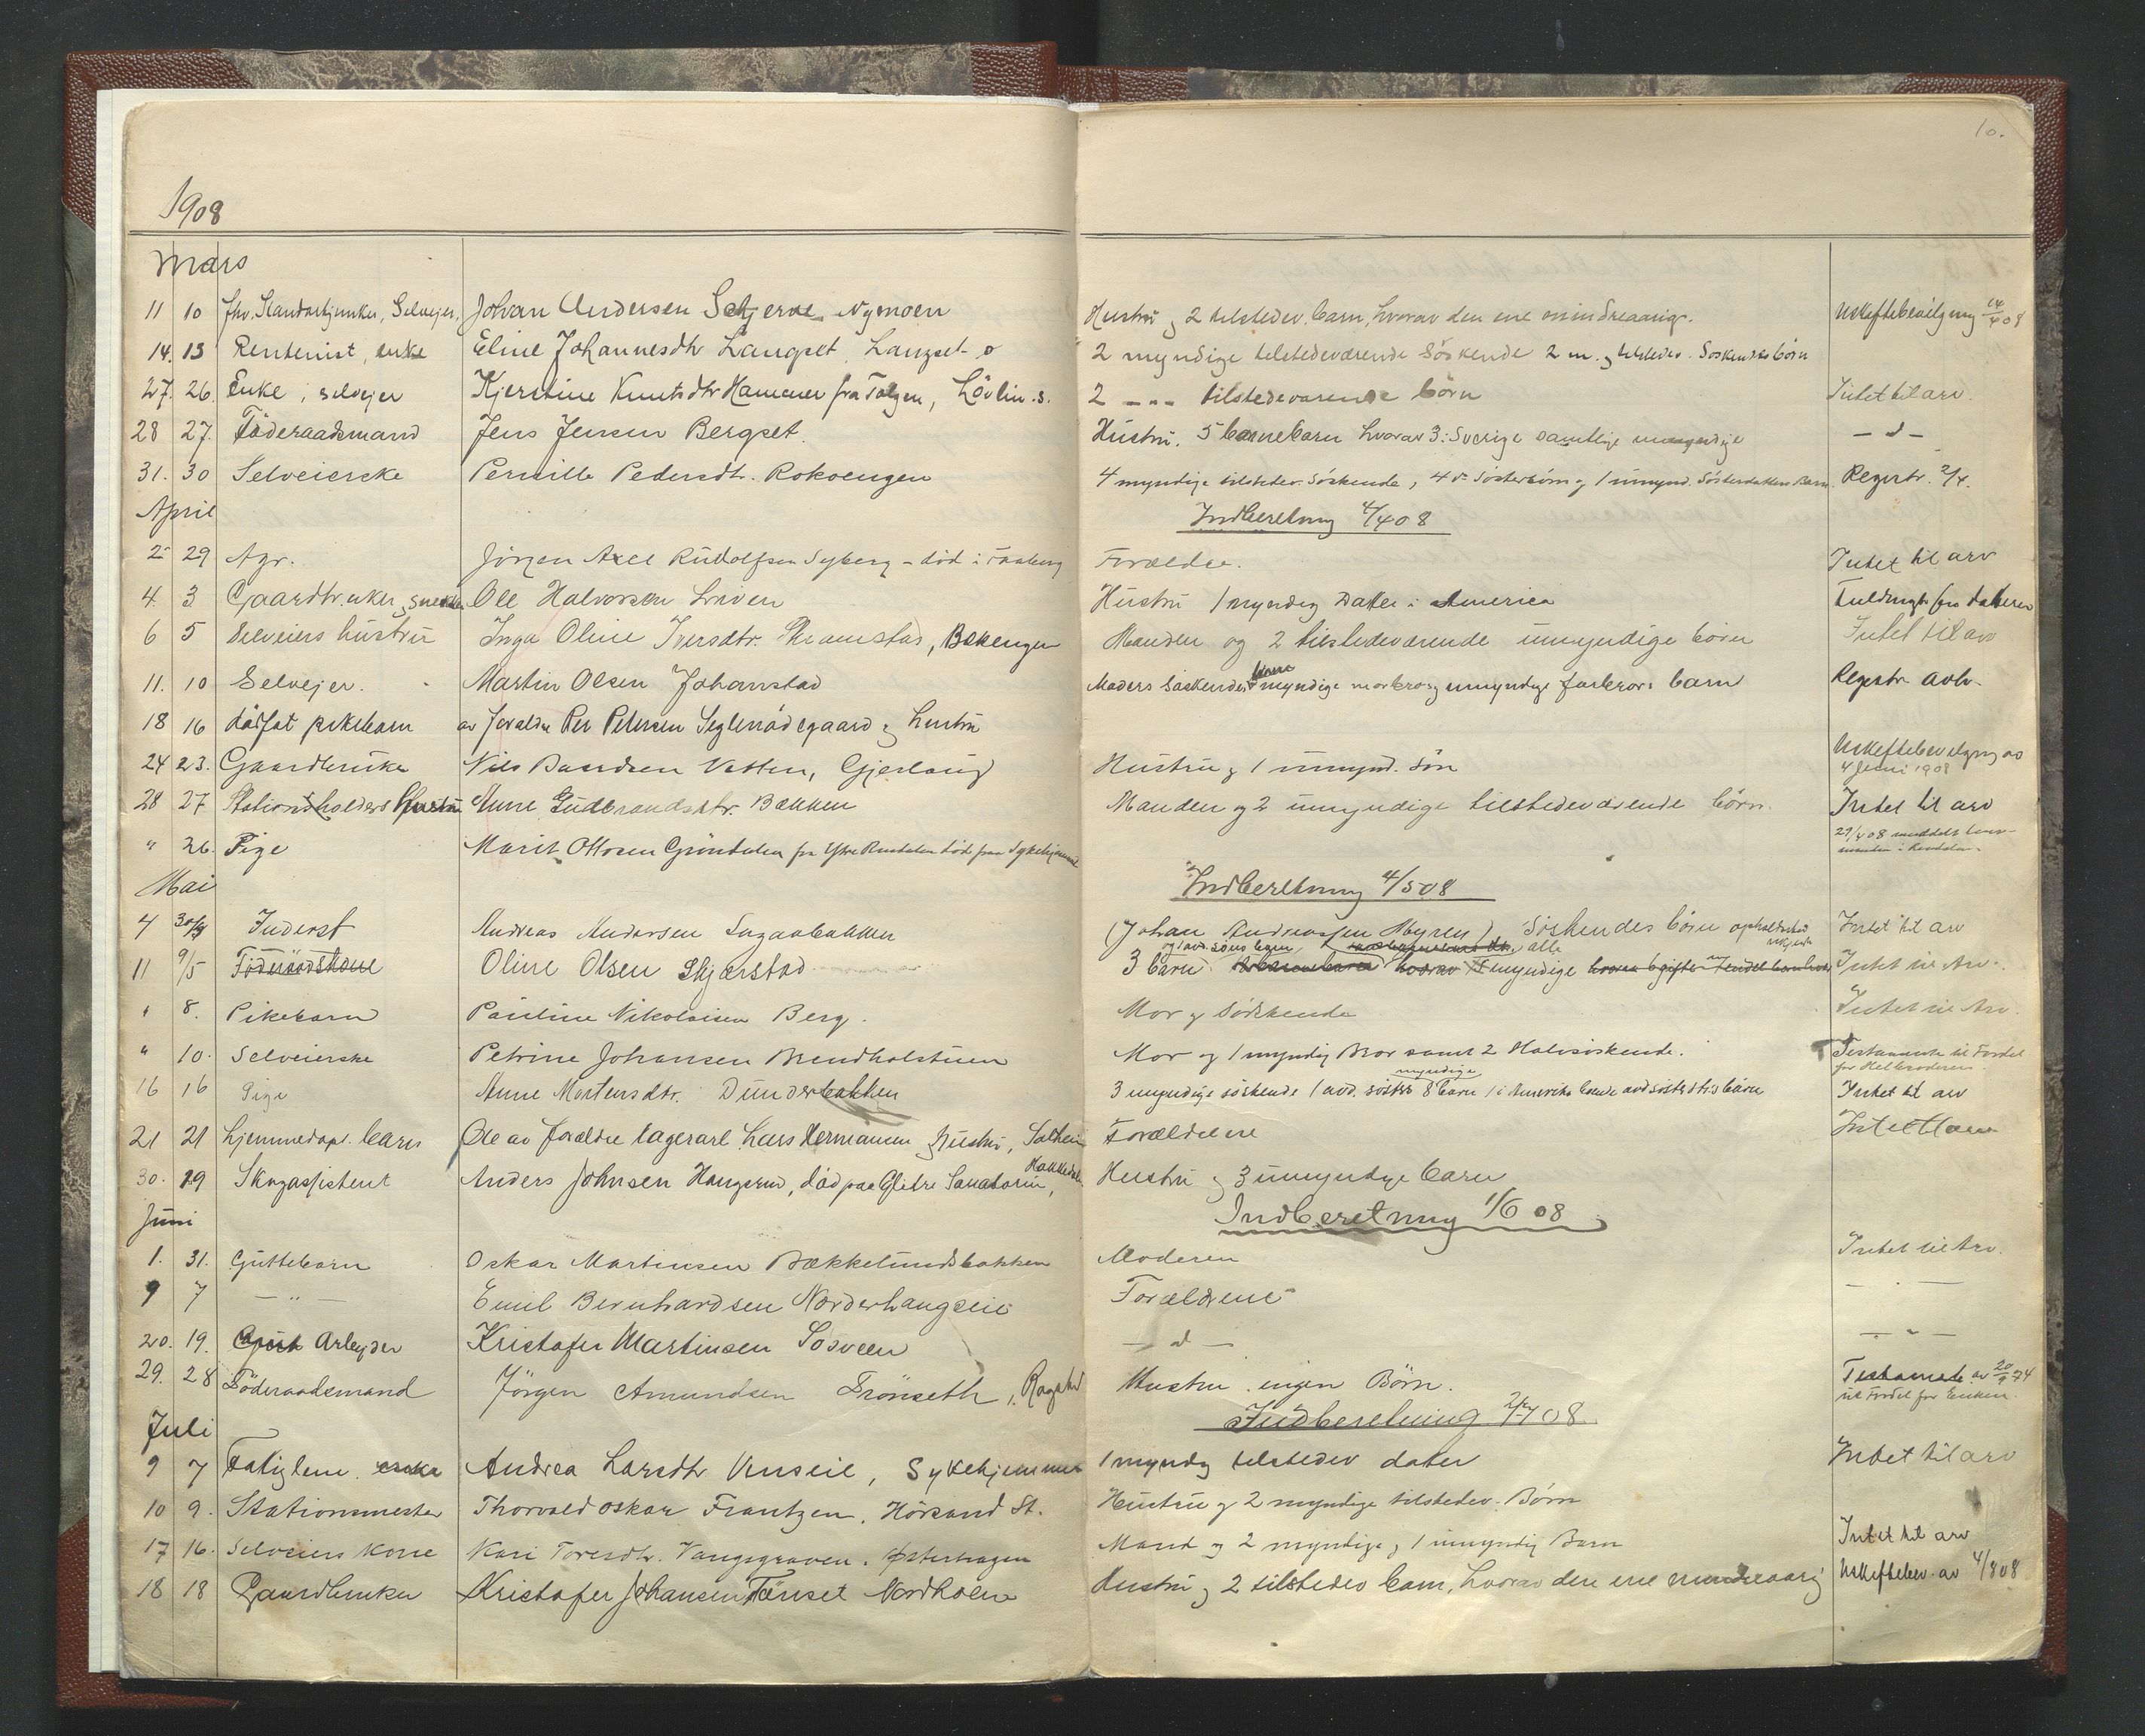 10.
1908
Mars
11 10 fhv. Standartjunker, Selveier, Johan Andersen Skjerve Nymoen Hustru og 2 tilstedev. barn, hvorav den ene mindreaarig. Uskiftebevilgning 14/4 08
14. 13 Rentenist, enke Eline Johannesdtr Langset Langset 2 myndige tilstedeværende Söskende 2 m. og tilstedev. Söskendebörn
27. 26. Enke, selvejer Kjerstine Knutsdtr Hamener fra Tolgen, Lövlin.s. 2 - „ - tilstedeværende börn Intet til arv.
28 27. Föderaadsmand Jens Jensen Bergset. Hustru. 5 barnebarn hvorav 3 i Sverige samtlige myndige - d -
31. 30 Selveierske Pernille Pedersdt. Rokoengen 4 myndige tilstedev. Söskende, 4 do Söstersörn og 1 umynd. Sösterdatters Barn. Registr. 2/4.
April
Indberetning 4/4 08
2 29 Agr. Jörgen Axel Rudolfsen Syberg - död i Faaberg Forældre. Intet til arv
4. 3 Gaardbruker og snekker Ole Halvorsen Hustru 1 myndig Datter i America Fuldmagt fra datteren
6 5 Selveiers hustru Inga Oline Iversdtr. Skramstad, Bekengen Manden og 2 tilstedeværende umyndige börn Intet til arv
11. 10 Selvejer. Martin Olsen Johanstad Moders Söskendes barn myndige morbror og umyndige farbrors barn Registr avh.
18 16 dödföt pikebarn av foreldre Per Petersen Seglerödegaard og hustru
24 23. Gaardbruker Nils Baardsen Vatten, Gjerlaug Hustru og 1 umynd. sön Uskiftebevilgning av 4 Juni 1908
28 27 Stationsholders hustru Anne Gudbrandsdtr. Bakken Manden og 2 umyndige tilstedeværende börn. Intet til arv
" 26. Pige Marit Ottosen Gröndalen fra Ytre Rendalen död paa Sykehjemmet 29/4 08 meddelt lensmanden i Rendalen.
Mai
Indberetning 4/5 08
4 30/4 Inderst Andreas Andersen (Johan Andreassen Myren) Söskendes börn Intet til arv
11 9/5 Föderaadskone Oline Olsen Skjærstad 3 barn alle myndige Intet til Arv.
" 8. Pikebarn Pauline Nikolaisen Berg. Mor og Södskende Intet til Arv.
" 10. Selveierske Petrine Johansen Brendholstuen Mor og 1 myndig Bror samt 2 Halvsöskende. Testamente til Fordel for Helbroderen.
16 16 Pige Anne Mortensdtr. Dunderbakken 3 myndige söskende 1 avd. söster 8 myndige barn Intet til arv
21 21 hjemmedöpt barn Ole av forældre lagerarb. Lars Hermansen og Hustru, Solheim Forældrene Intet til arv
30. 29 Skogassistent Anders Johnsen Haugerud, död paa Glitre Sanatorium, Hakkedal Hustru og 3 umyndige barn
Juni
Indberetning 1/6 08
1. 31. Guttebarn Oskar Martinsen Bækkelundsbakken Moderen Intet til Arv.
9 7 - „ - Emil Bernhardsen Norderhaugseie Forældrene - „ -
20. 19. Arbeyder Kristofer Martinsen Sosveen - d - - „ -
29. 28 Föderaadsmand Jörgen Amundsen Grönseth, Hustru ingen Börn. Testamente til Fordel for Enken.
Juli
Indberetning 2/7 08
9 7 Fatiglem. enke Andrea Larsdtr Unseie, Sykehjemmet 1 myndig tilstedev datter Intet til arv
10 9. Stationsmester Thorvald Oskar Frantzen, Hörsand St. Hustru og 2 myndige tilstedev. Börn
17 16. Selveiers kone Kari Toresdtr. Vangsgraven. Østerhagen Mand og 2 myndige og 1 umyndig Barn Intet til arv
18 18 Gaardbruker Kristofer Johansen Tönset Nordholen Hustru og 2 tilstedev barn, hvorav den ene mindreaarig Uskiftebev. av 4/8 08